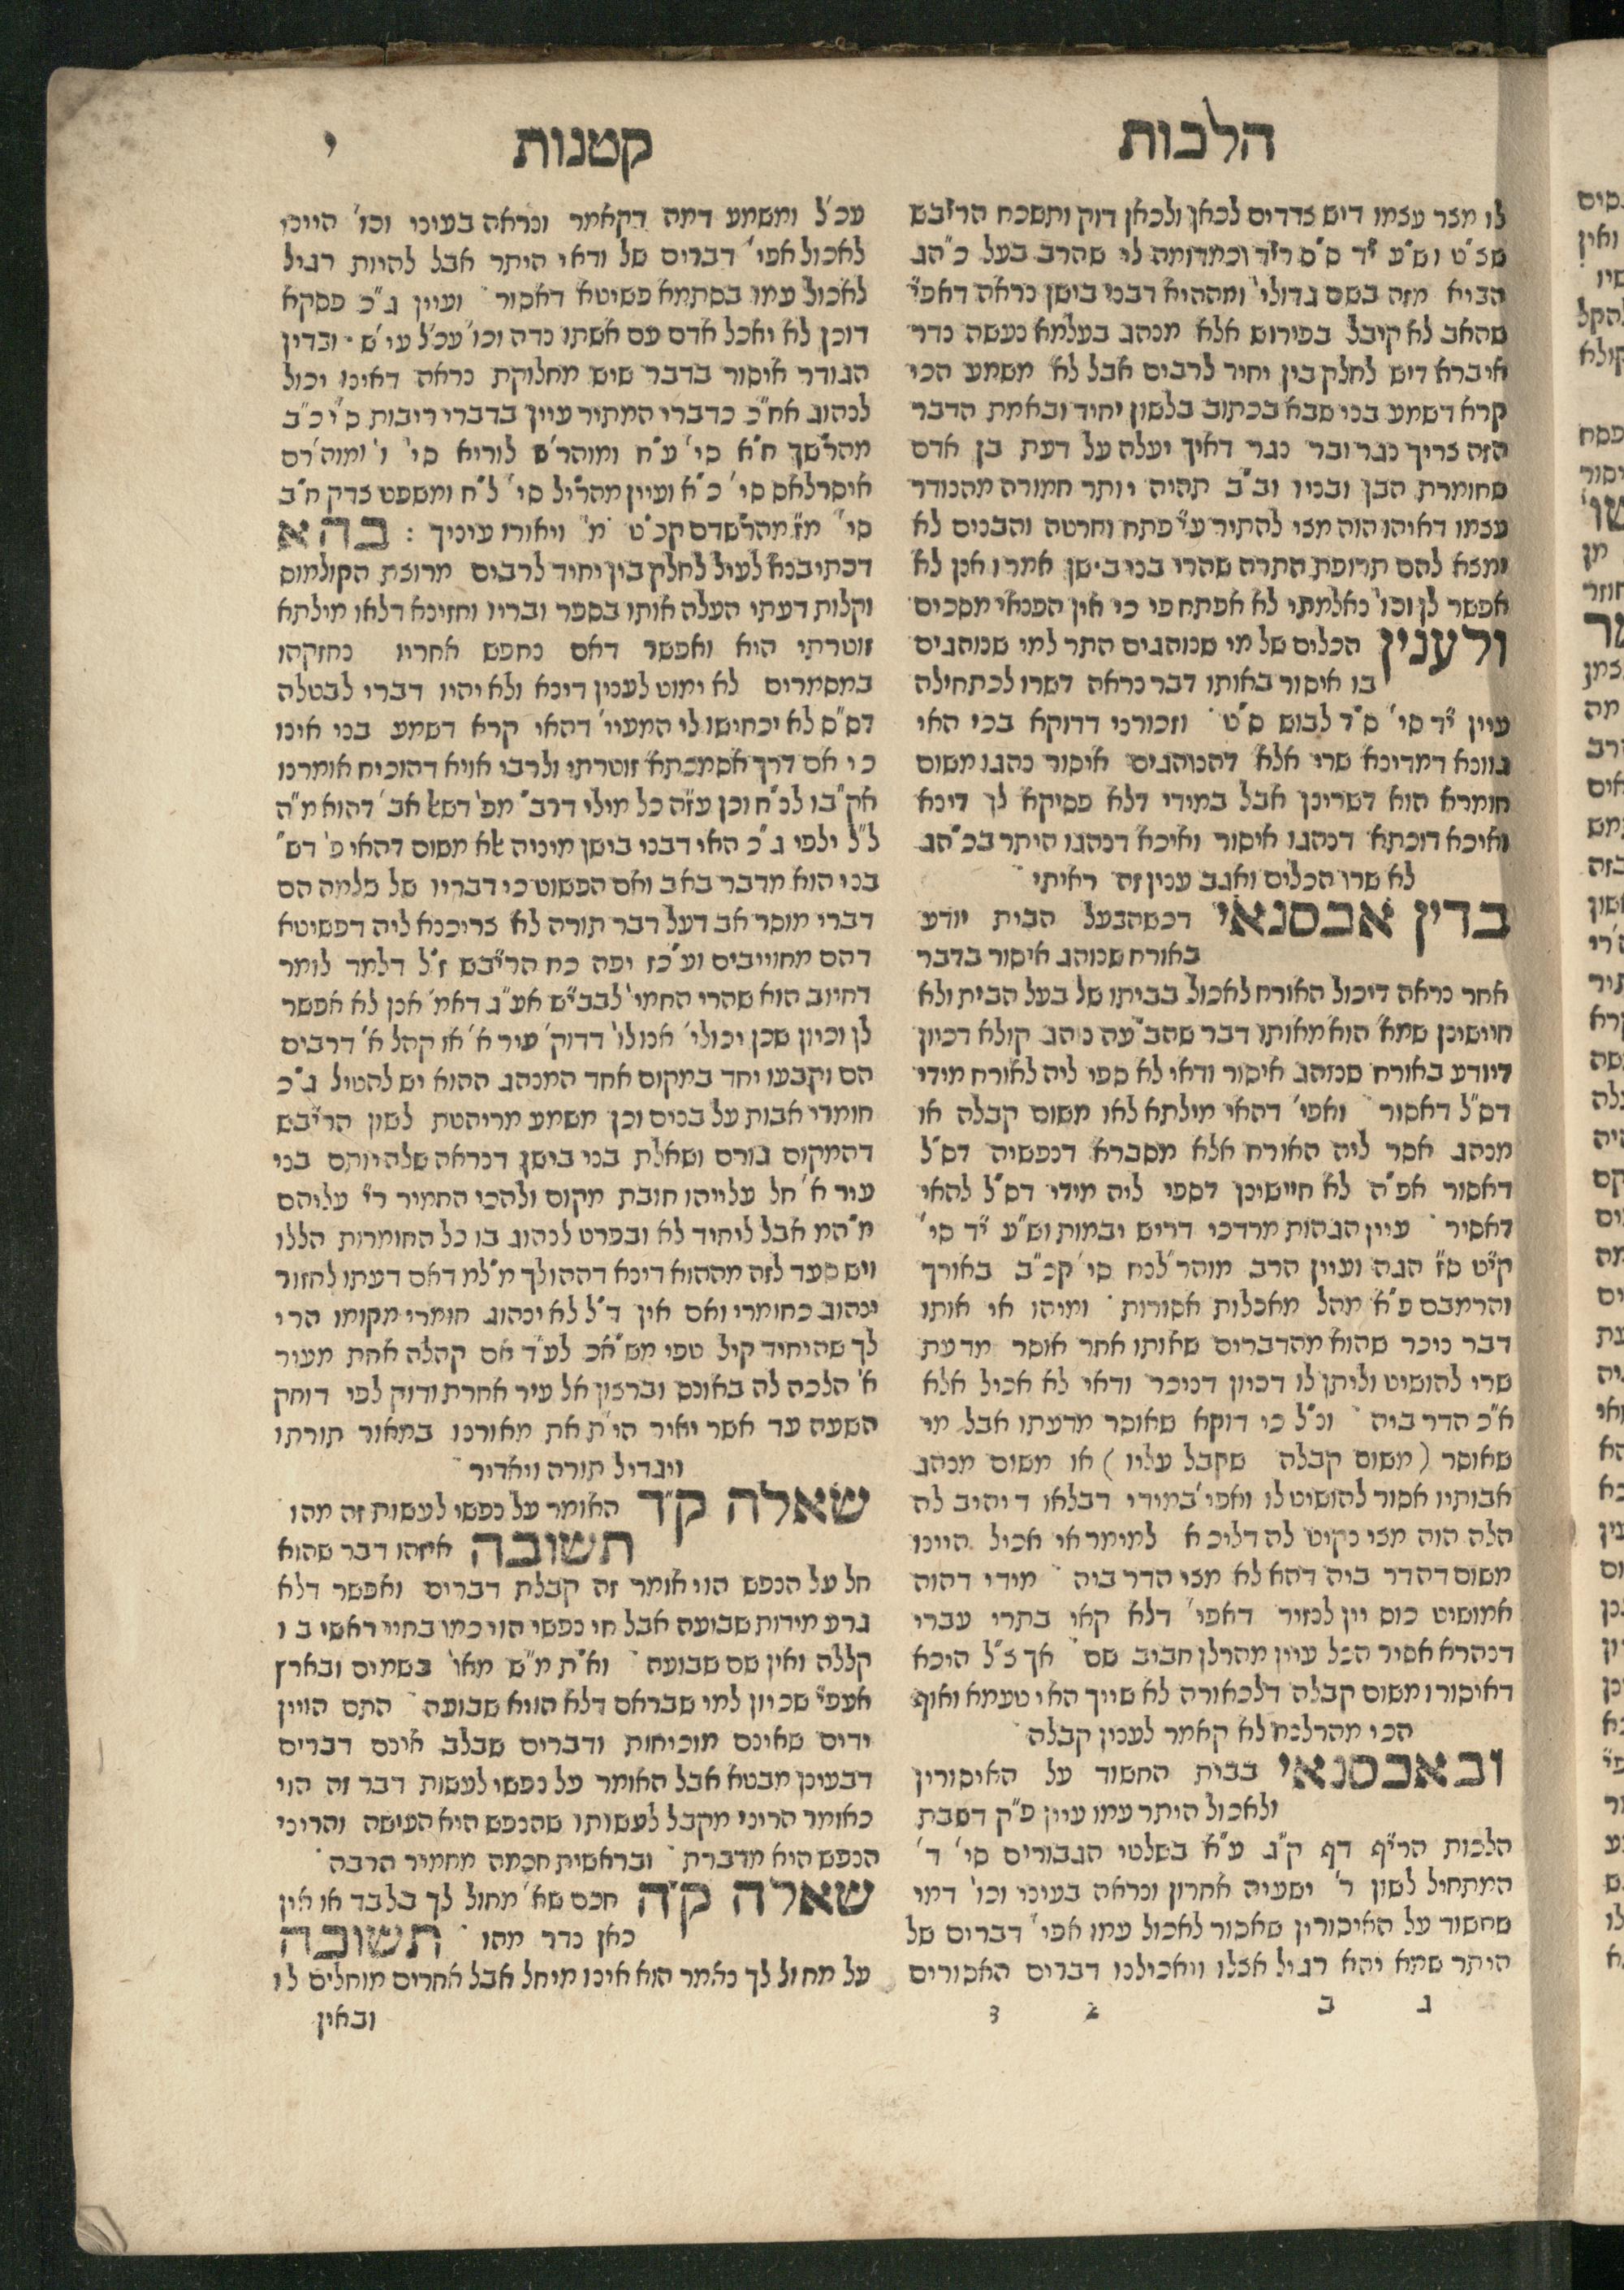 הלכות
קטנות
י
לו מצר עצמו דיש צדדים לכאן ולכאן דוק ותשכח הריב״ש
שצ״ט וש״ע י״ד ס״ס רי״ד וכמדומה לי שהרב בעל כ״הג
הביא מזה בשם גדולי׳ ומההיא דבני בישן נראה דאפי׳
שהאב לא קיבל בפירוש אלא מנהג בעלמא נעשה נדר
איברא דיש לחלק בין יחיד לרבים אבל לא משמע הכי
קרא דשמע בני שבא בכתוב בלשון יחיד ובאמת הדבר
הזה צריך נגר ובר נגר דאיך יעלה על דעת בן אדם
שחומרת הבן ובניו וב״ב תהיה יותר חמורה מהנודר
עצמו דאיהו הוה מצי להתיר ע״י פתח וחרטה והבנים לא
ימצא להם תרופת התרה שהרי בני בישן אמרו אנן לא
אפשר לן וכו׳ נאלמתי לא אפתח פי כי אין הפנאי מסכים
ולענין הכלים של מי שנוהגים התר למי שנוהגים
בו איסור באותו דבר נראה דשרו לכתחילה
עיין י״ד סי׳ ס״ד לבוש ס״ט ׳ וזכורני דדוקא בכי האי
גוונא דמדינא שרי אלא דהנוהגים איסור נהגו משום
חומרא הוא דשרינן אבל במידי דלא פסיקא לן דינא
ואיכא דוכתא דנהגו איסור ואיכא דנהגו היתר בכ״הג
לא שרו הכלים ואגב ענין זה ראיתי ׳
בדין אכסנאי דכשהבעל הבית יודע
באורח שנוהג איסור בדבר
אחר נראה דיכול האורח לאכול בביתו של בעל הבית ולא
חיישינן שמא הוא מאותו דבר שהב״עה נוהג קולא דכיון
דיודע באורח שנוהג איסור ודאי לא ספי ליה לאורח מידי
דס״ל דאסור ׳ ואפי׳ דהאי מילתא לאו משום קבלה או
מנהג אסר ליה האורח אלא מסברא דנפשיה דס״ל
דאסור אפ״ה לא חיישינן דספי ליה מידי דס״ל להאי
דאסיר ׳ עיין הגהות מרדכי דריש יבמות וש״ע י״ד סי׳
קי״ט ס״ז הגה ועיין הרב מוהר״לנח סי׳ קכ״ב באורך
והרמבם פ״א מהל מאכלות אסורות ׳ ומיהו אי אותו
דבר ניכר שהוא מהדברים שאותו אחר אוסר מדעת
שרי להושיט וליתן לו דכיון דניכר ודאי לא אכיל אלא
א״כ הדר ביה ׳ וכ״ל כי דוקא שאוסר מדעתו אבל מי
שאוסר (משום קבלה שקבל עליו) או משום מנהג
אבותיו אסור להושיט לו ואפי׳ במידי דבלאו דיהיב לה
הלה הוה מצי נקיט לה דליכא למימר אי אכיל היינו
משום דהדר ביה דהא לא מצי הדר ביה ׳ מידי דהוה
אמושיט כוס יין לנזיר דאפי׳ דלא קאי בתרי עברי
דנהרא אסיר הכל עיין מהרלן חביב שם ׳ אך צ״ל היכא
דאיסורו משום קבלה דלכאורה לא שייך האי טעמא ואוף
הכי מהרלנח לא קאמר לענין קבלה ׳
ובאכסנאי בבית החשוד על האיסורין
ולאכול היתר עמו עיין פ״ק דשבת
הלכות הרי״ף דף ק״ג ע״א בשלטי הגבורים סי׳ ד׳
המתחיל לשון ר׳ ישעיה אחרון ונראה בעיני וכו׳ דמי
שחשוד על האיסורין שאסור לאכול עמו אפי׳ דברים של
היתר שמא יהא רגיל אצלו ויאכילנו דברים האסורים
ג ב 2 3
עכ״ל ומשמע דמה דקאמר ונראה בעיני וכו׳ היינו
לאכול אפי׳ דברים של ודאי היתר אבל להיות רגיל
לאכול עמו בסתמא פשיטא דאסור ׳ ועיין ג״כ פסקא
דוכן לא יאכל אדם עם אשתו נדה וכו׳ עכ״ל עי״ש ׳ ובדין
הנודר איסור בדבר שיש מחלוקת נראה דאינו יכול
לנהוג אח״כ כדברי המתיר עיין בדברי ריבות סי׳ כ״ב
מהר״שך ח״א סי׳ ע״ח ומוהר״ש לוריא סי׳ ו׳ ומוה׳רם
איסרלאס סי׳ כ״א ועיין מהר״יל סי׳ ל״ח ומשפט צדק ח״ב
סי׳ מ״ז מהרשדם קכ״ט ׳מ׳ ויאורו עיניך : בהא
דכתיבנא לעיל לחלק בין יחיד לרבים מרוצת הקולמוס
וקלות דעתי העלה אותו בספר ובריו וחזינא דלאו מילתא
זוטרתי היא ואפשר דאם נחפש אחריו נחזקהו
במסמרים לא ימוט לענין דינא ולא יהיו דברי לבטלה
דס״ס לא יכחישו לי המעיי׳ דהאי קרא דשמע בני אינו
כי אם דרך אסמכתא זוטרתי ולרבי אויא דהוכיח אומרנו
אק״בו לנ״ח וכן עז״ה כל מילי דרב״ מפ׳ דשא אב׳ דהוא מ״ה
ל״ל ילפי ג״כ האי דבני בישן מיניה לא משום דהאי פ׳ דש״
בני הוא מדבר באב ואם הפשוט כי דבריו של שלמה הם
דברי מוסר אב דעל דבר תורה לא צריכנא ליה דפשיטא
דהם מחוייבים וע״כז יפה כח הרי״בש ז״ל דלמד לומר
דחיוב הוא שהרי החמי׳ לבבי״ש אע״ג דאמ׳ אנן לא אפשר
לן וכיון שכן יכולי׳ אנו לו׳ דדוק׳ עיר א׳ או קהל א׳ דרבים
הם וקבעו יחד במקום אחד המנהג ההוא יש להטיל ג״כ
חומרי אבות על בנים וכן משמע מריהטת לשון הרי״בש
דהמקום גורם ושאלת בני בישן דנראה שלהיותם בני
עיר א׳ חל עלייהו חובת מקום ולהכי החמיר ר״י עליהם
מ״המ אבל ליחיד לא ובפרט לנהוג בו כל החומרות הללו
ויש סעד לזה מההוא דינא דההולך מ״למ דאם דעתו לחזור
ינהוג כחומרי ואם אין ד״ל לא ינהוג חומרי מקומו הרי
לך שהיחיד קיל טפי מש״אכ לע״ד אם קהלה אחת מעיר
א׳ הלכה לה באונס וברצון אל עיר אחרת ודוק לפי דוחק
השעה עד אשר יאיר הי״ת את מאורנו במאור תורתו
ויגדיל תורה ויאדיר ׳
שאלה ק״ד האומר על נפשי לעשות זה מהו ׳
תשובה איזהו דבר שהוא
חל על הנפש הוי אומר זה קבלת דברים ואפשר דלא
גרע מידות שבועה אבל חי נפשי הוי כמו בחיי ראשי בו
קללה ואין שם שבועה ׳ וא״ת מ״ש מאו׳ בשמים ובארץ
אעפ״י שכיון למי שבראם דלא הויא שבועה ׳ התם הויין
ידים שאינם מוכיחות ודברים שבלב אינם דברים
דבעינן מבטא אבל האומר על נפשי לעשות דבר זה הוי
כאומר הריני מקבל לעשותו שהנפש היא העושה והריני
הנפש היא מדברת ׳ ובראשית חכמה מחמיר הרבה ׳
שאלה ק״ה חכם שא׳ מחול לך בלבד או אין
כאן נדר מהו ׳ תשובה
על מחול לך כאמר הוא אינו מיחל אבל אחרים מוחלים לו
ובאין